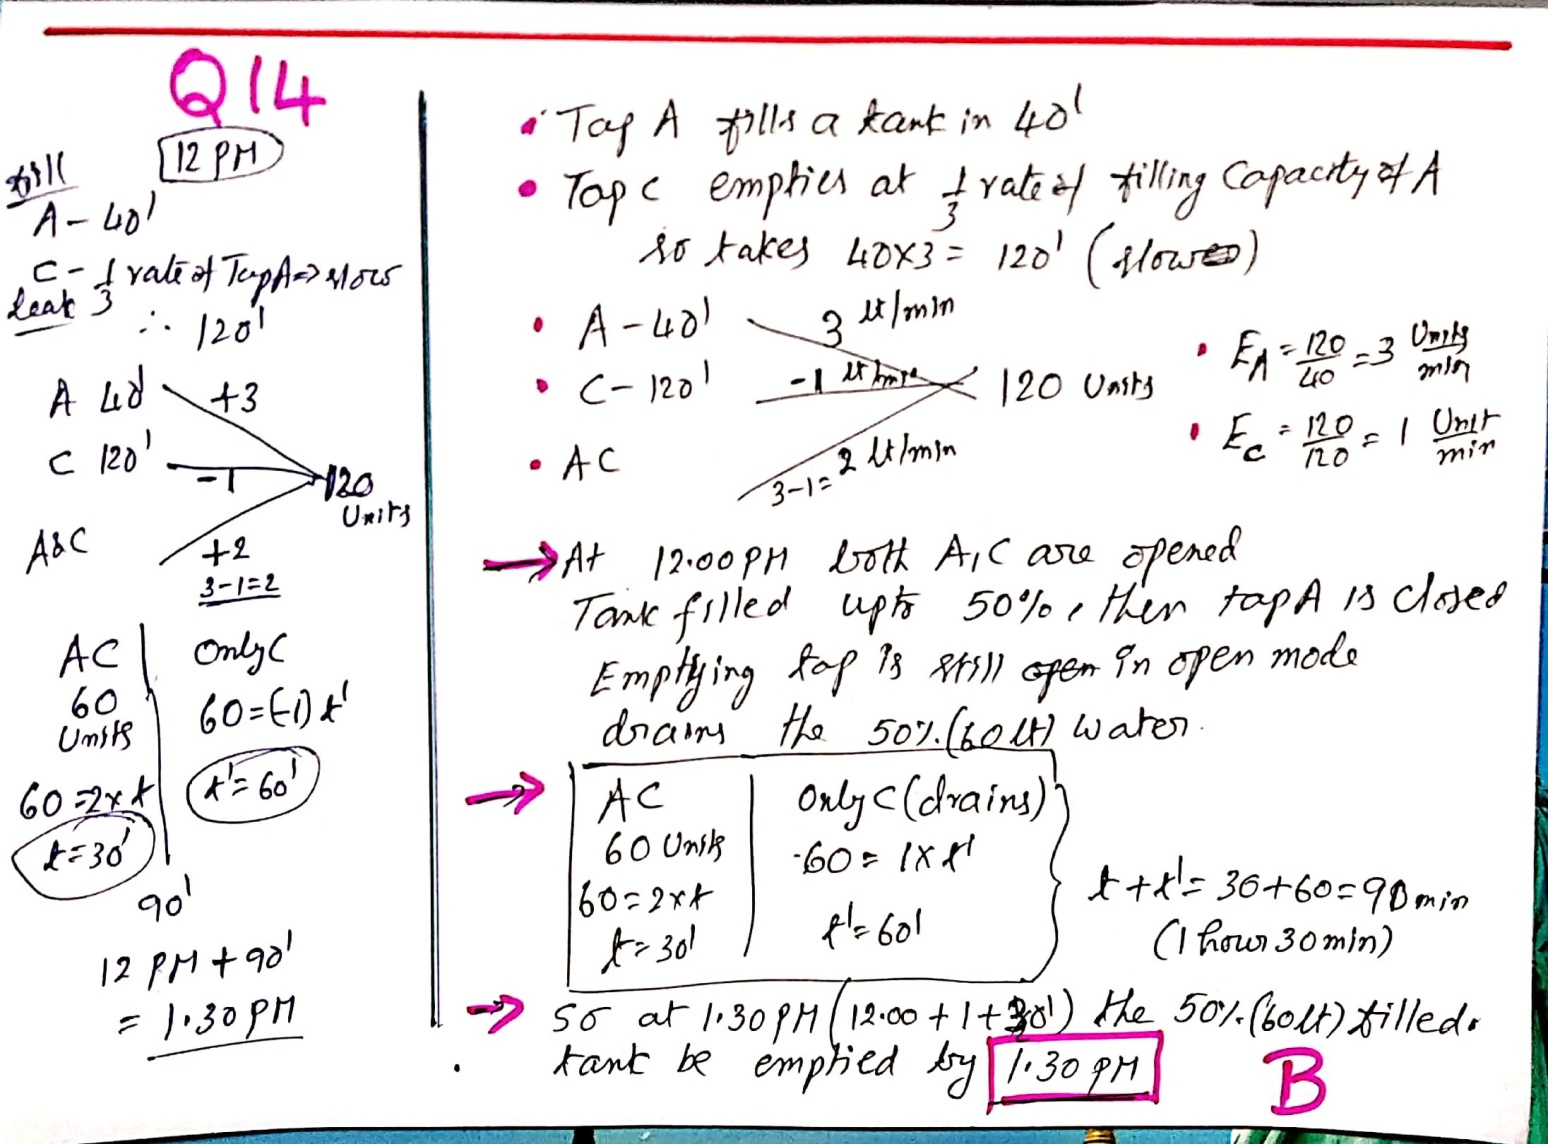 Q14
12 PM
fill
A - 40'
C - 1/3 rate of Tap A => slow
leak
∴ 120'
A 40' +3
C 120' -1
120 Units
A&C +2
3-1=2
AC | Only C
60 Units
60=(-1)t'
60=2×t
t'=60'
t=30'
90'
12 PM + 90'
= 1.30 PM
• Tap A fills a tank in 40'
• Tap C empties at 1/3 rate of filling Capacity of A
so takes 40×3 = 120' (slow)
• A - 40' 3 lt/min
• C - 120' -1 lt/min 120 Units
• AC 3-1= 2 lt/min
• E_A = 120/40 = 3 Units/min
• E_C = 120/120 = 1 Unit/min
→ At 12.00 PM both A,C are opened
Tank filled upto 50%, then tap A is closed
Emptying tap is still open in open mode
drains the 50%.(60 lt) water.
→ AC | Only C (drains)
60 Units | -60 = 1×t'
60=2×t
t=30' | t'=60'
t+t'= 30+60=90 min
(1 hour 30 min)
→ So at 1.30 PM (12.00 + 1+30') the 50%.(60lt) filled.
tank be emptied by 1.30 PM
B